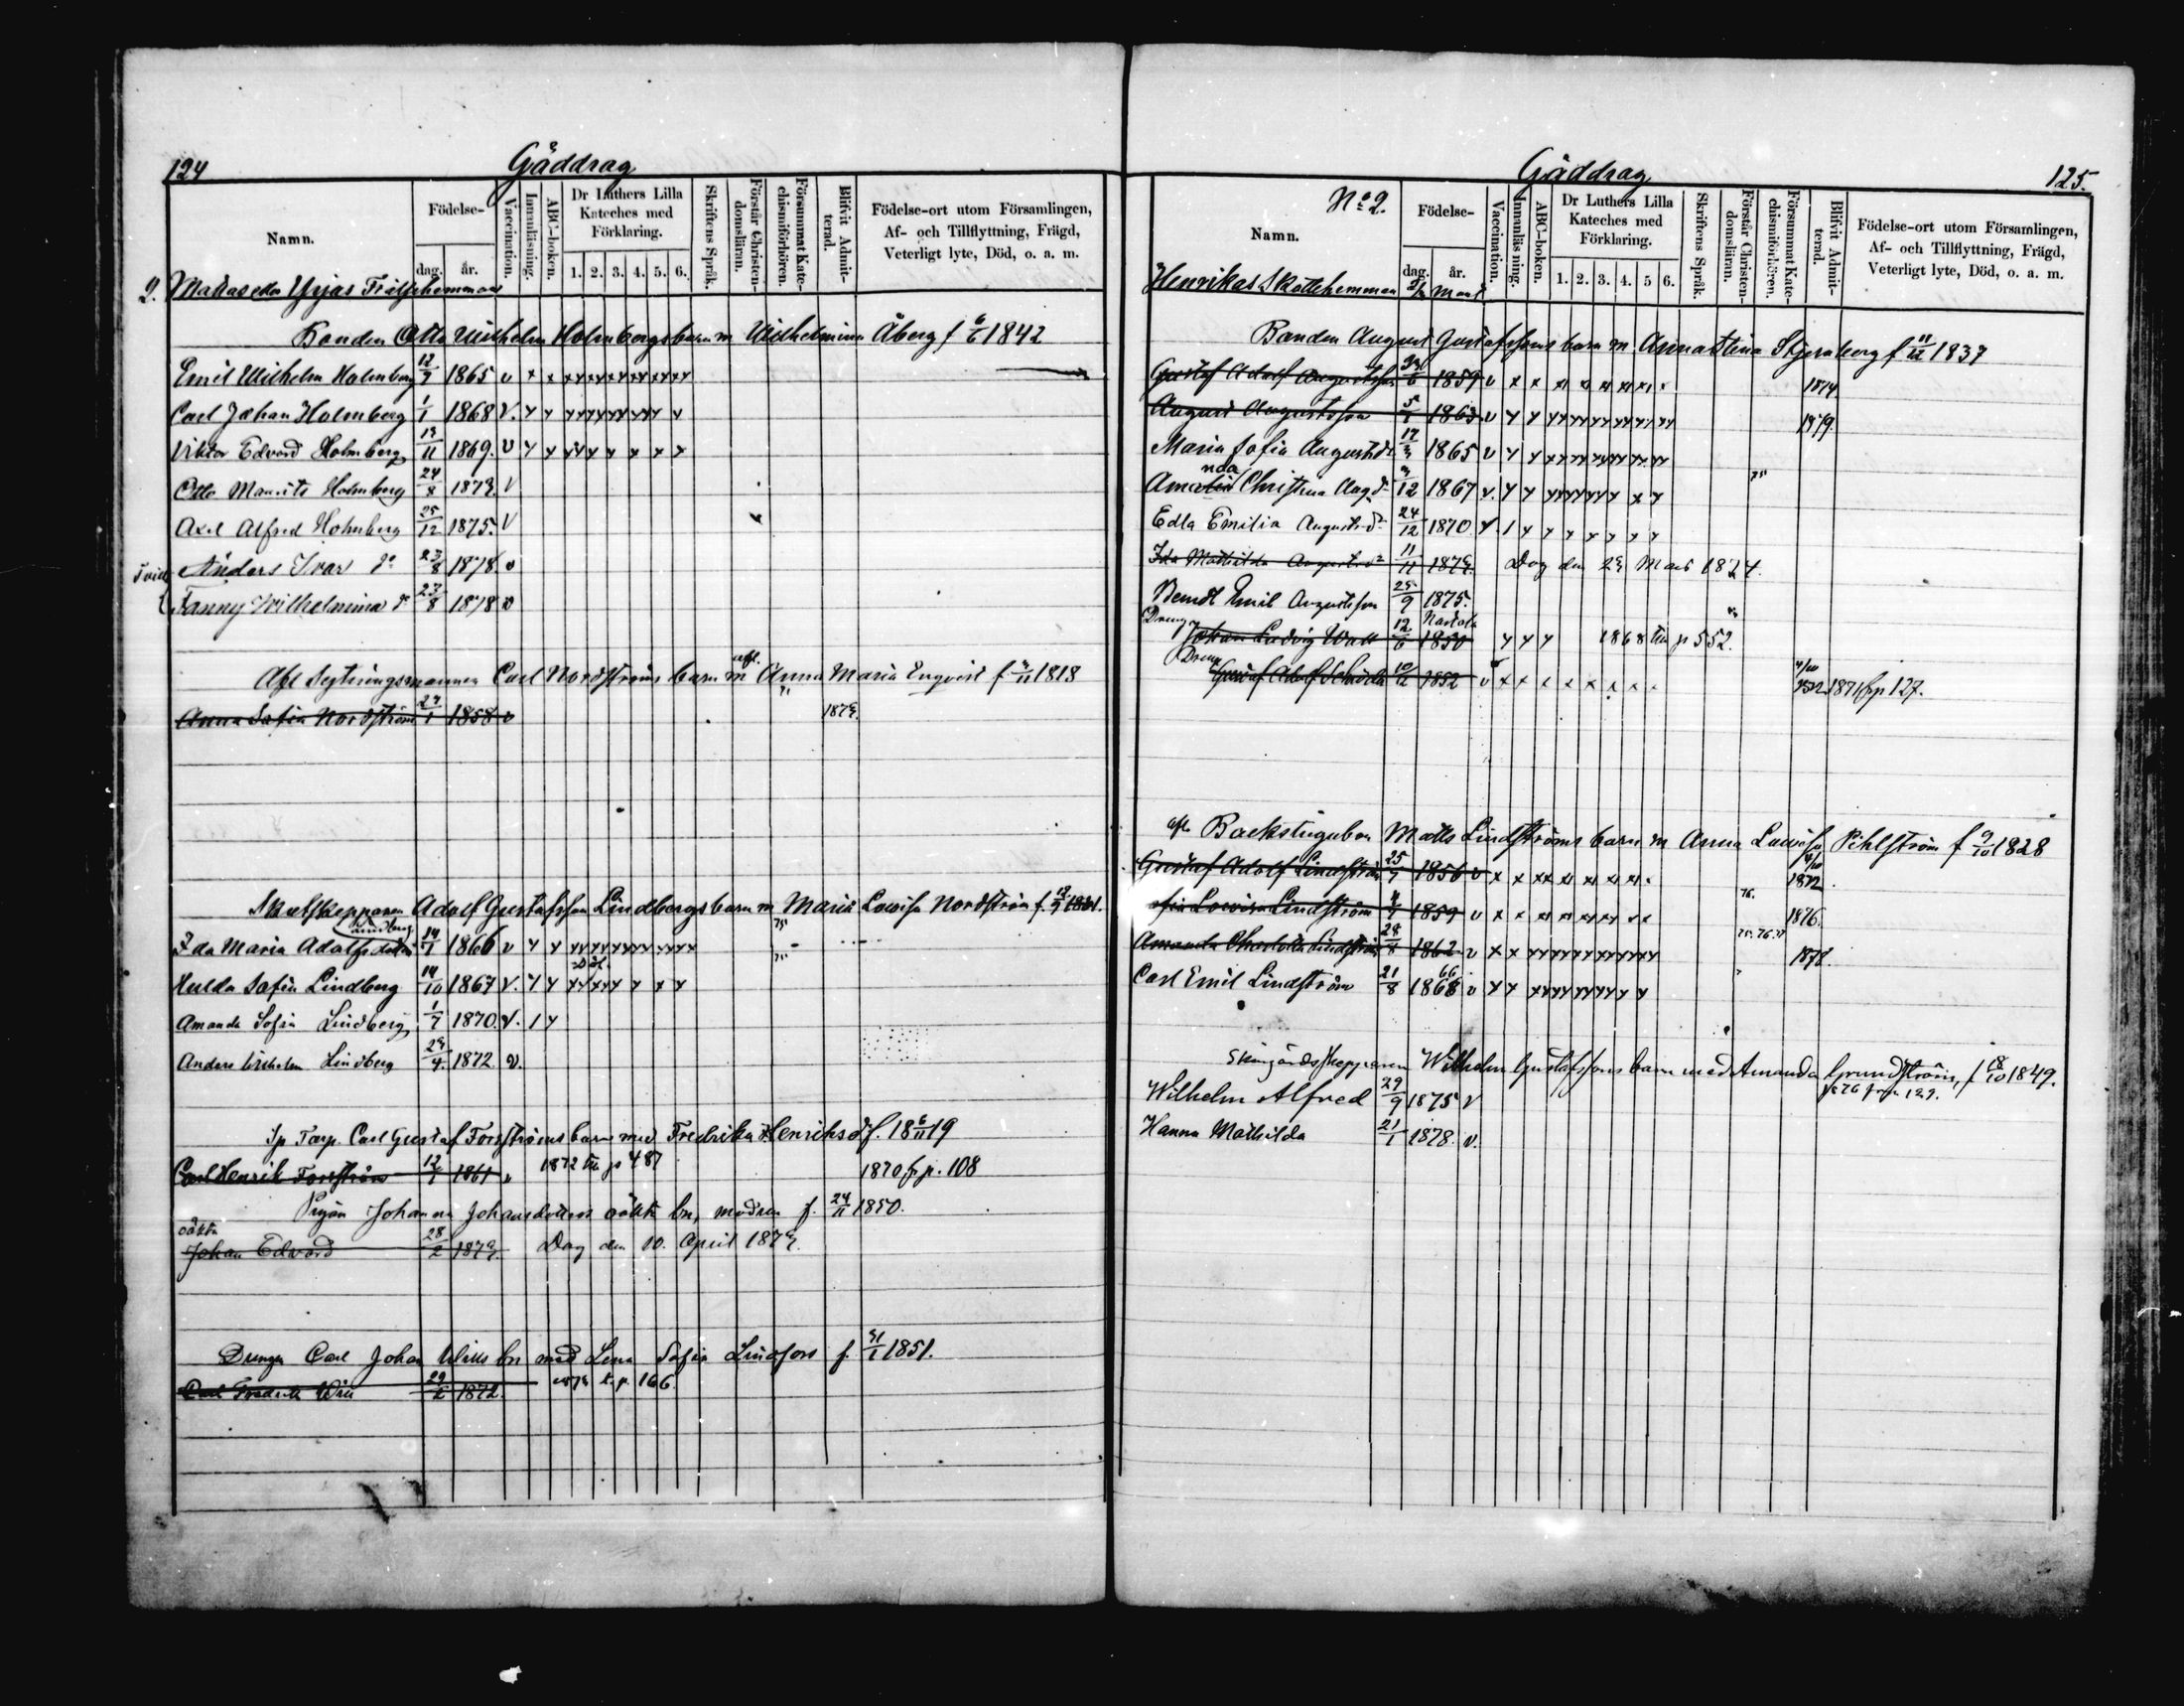 124
Gäddrag
Namn.
Födelse-
dag.
år.
Vaccination.
Innanläsning.
ABC-boken.
Dr Luthers Lilla Kateches med Förklaring.
1. 2. 3. 4. 5. 6.
Skriftens Språk.
Förstår Christendomsläran.
Försummat Katechismiförhören.
Blifvit Admitterad.
Födelse-ort utom Församlingen,
Af- och Tillflyttning, Frägd,
Veterligt lyte, Död, o. a. m.
2. Mattas eller Yrjas Frälsehemman
Bonden Otto Wilhelm Holmbergs barn m Wilhelmina Åberg f 6/6 1842
Emil Wilhelm Holmberg 12/7 1865 v x x
Carl Johan Holmberg 1/1 1868 v.
Viktor Edvard Holmberg 13/11 1869. v
Otto Maurits Holmberg 24/8 1873. v
Axel Alfred Holmberg 25/12 1875. v
Anders Ivar do 23/8 1878. v
Fanny Wilhelmina do 23/8 1878 v
Afl Carl Nordströms barn m afl. Anna Maria Enqvist f 4/11 1818
Anna Sofia Nordström 1858 v 1873.
Skutskepparen Adolf Gustafsson Lindbergs barn m Maria Lovisa Nordström f.
Lindberg
Ida Maria Adolfsdotter 14/7 1866 v 75
Hulda Sofia Lindberg 14/10 1867 v. 75
Amanda Sofia Lindberg 1/7 1870. v.
Anders Wilhelm Lindberg 23/4. 1872 v.
Sp Torp. Carl Gustaf Forsströms barn med Fredrika Henriksd f. 18 6/11 19
Carl Henrik Forsström 12/1 1861 v 1872 till p 487 1870 fr p. 108
Pigan Johanna Johansdotters oäkta bn, modren f. 24/11 1850.
oäkta
Johan Edvard 28/2 1873. Dog den 10. April 1873.
Drengen Carl Johan Wiks bn med Lena Sofia Lindfors f. 31/1 1851.
Carl Fredrik Wik 29/2 1872. t. p. 166.
Gäddrag
125.
No 2.
Namn.
Födelse-
dag.
år.
Vaccination.
Innanläsning.
ABC-boken.
Dr Luthers Lilla Kateches med Förklaring.
1. 2. 3. 4. 5 6.
Skriftens Språk.
Förstår Christendomsläran.
Försummat Katechismiförhören.
Blifvit Admitterad.
Födelse-ort utom Församlingen,
Af- och Tillflyttning, Frägd,
Veterligt lyte, Död, o. a. m.
Henrikas Skattehemman mant
Bonden August Gustafssons barn m Anna Stina Stjernberg f 11/12 1837
Gustaf Adolf Augustsson 1859 v x x 1874.
August Augustsson 5/1 1863 v 1879.
Maria Sofia Augustsdr 17/3 1865 v
Amanda Christina Augdr 3/12 1867 v. 75
Edla Emilia Augustsdr 24/12 1870
Ida Mathilda Augustsdr 11/11 1873. Dog den 23 Mars 1874.
Berndt Emil Augustsson 25/9 1875.
Dreng Johan Ludvig Wall 12/6 1850 1868 till p 552.
Dreng Gustaf Adolf 10/12 1852 v 1872 1871 fr p 127.
afl Backstugubon Matts Lindströms barn m Anna Lovisa Pihlström f 9/10 1828
Gustaf Adolf Lindström 25/7 1856 v 1872.
Lovisa Lindström 1859 v 76. 1876.
Amanda Charlotta Lindström 28/8 1862 v 75. 76. 77 1878.
Carl Emil Lindström 21/8 1868 66 v
Skärgårdsskepparen Wilhelm Gustafssons barn med Amanda Grundström, f 18/10 1849.
1876 fr p 129.
Wilhelm Alfred 29/9 1875 v
Hanna Mathilda 21/1 1878. v.